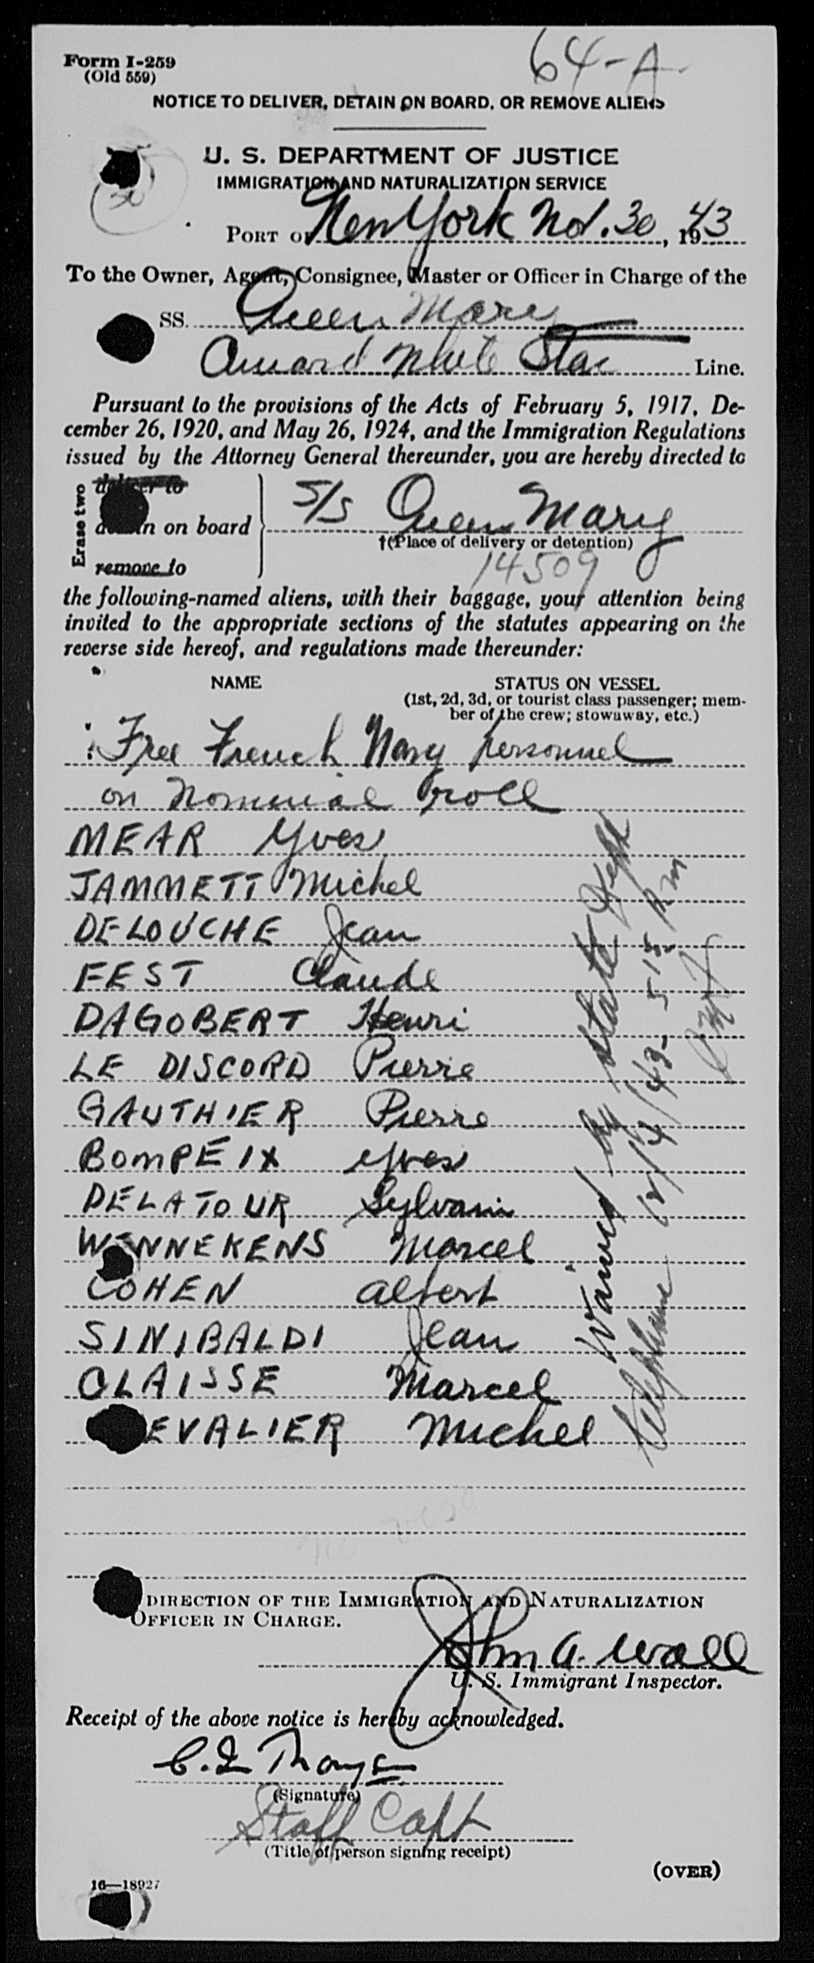 Form I-259
(Old 559)
64-A
NOTICE TO DELIVER, DETAIN ON BOARD, OR REMOVE ALIENS
U. S. DEPARTMENT OF JUSTICE
IMMIGRATION AND NATURALIZATION SERVICE
PORT OF New York Nov. 30, 1943
To the Owner, Agent, Consignee, Master or Officer in Charge of the
SS. Queen Mary
Cunard White Star Line.
Pursuant to the provisions of the Acts of February 5, 1917, De-
cember 26, 1920, and May 26, 1924, and the Immigration Regulations
issued by the Attorney General thereunder, you are hereby directed to
Erase two
deliver to
detain on board
remove to
S/S Queen Mary
†(Place of delivery or detention)
14509
the following-named aliens, with their baggage, your attention being
invited to the appropriate sections of the statutes appearing on the
reverse side hereof, and regulations made thereunder:
NAME
STATUS ON VESSEL
(1st, 2d, 3d, or tourist class passenger; mem-
ber of the crew; stowaway, etc.)
Free French Navy personnel
on nominal roll
MEAR Yves
JAMMETT Michel
DELOUCHE Jean
FEST Claude
DAGOBERT Henri
LE DISCORD Pierre
GAUTHIER Pierre
BOMPEIX Yves
DELATOUR Sylvain
WENNEKENS Marcel
COHEN Albert
SINIBALDI Jean
CLAISSE Marcel
EVALIER Michel
Waived by State Dept
telephone 12/4/43 - 5 15 pm
no visa
DIRECTION OF THE IMMIGRATION AND NATURALIZATION
OFFICER IN CHARGE.
John A. Wall
U. S. Immigrant Inspector.
Receipt of the above notice is hereby acknowledged.
(Signature)
Staff Capt
(Title of person signing receipt)
(OVER)
16—18927